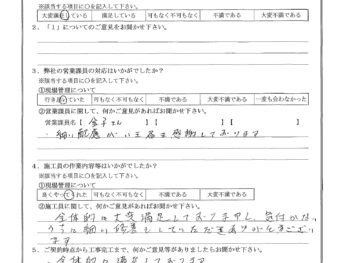 ※該当する項目に○を記入して下さい。
大変満足している 満足している 可もなく不可もなく 不満である 大変不満である
2.「1」についてのご意見をお聞かせ下さい。
3.弊社の営業課員の対応はいかがでしたか?
※該当する項目に○を記入して下さい。
①現場管理について
行き届いていた 可もなく不可もなく 不満である 大変不満である 一度も会わなかった
②営業課員に関して、何かご意見があればお聞かせ下さい。
営業課員名【 金子さん 】【 】【 】
・細い配慮が 感謝しております
4.施工課員の作業内容等はいかがでしたか?
※該当する項目に○を記入して下さい。
①現場管理について
良くやってくれた 可もなく不可もなく 不満である 大変不満である
②施工課員に関して、何かご意見があればお聞かせ下さい。
全体的に大変満足しております中し、気付かない
うちに細い修善をしていただきありがとうござい
ます
5.ご契約時点から工事完工まで、何かご意見等がありましたらお聞かせ下さい。
・全体的に満足しております